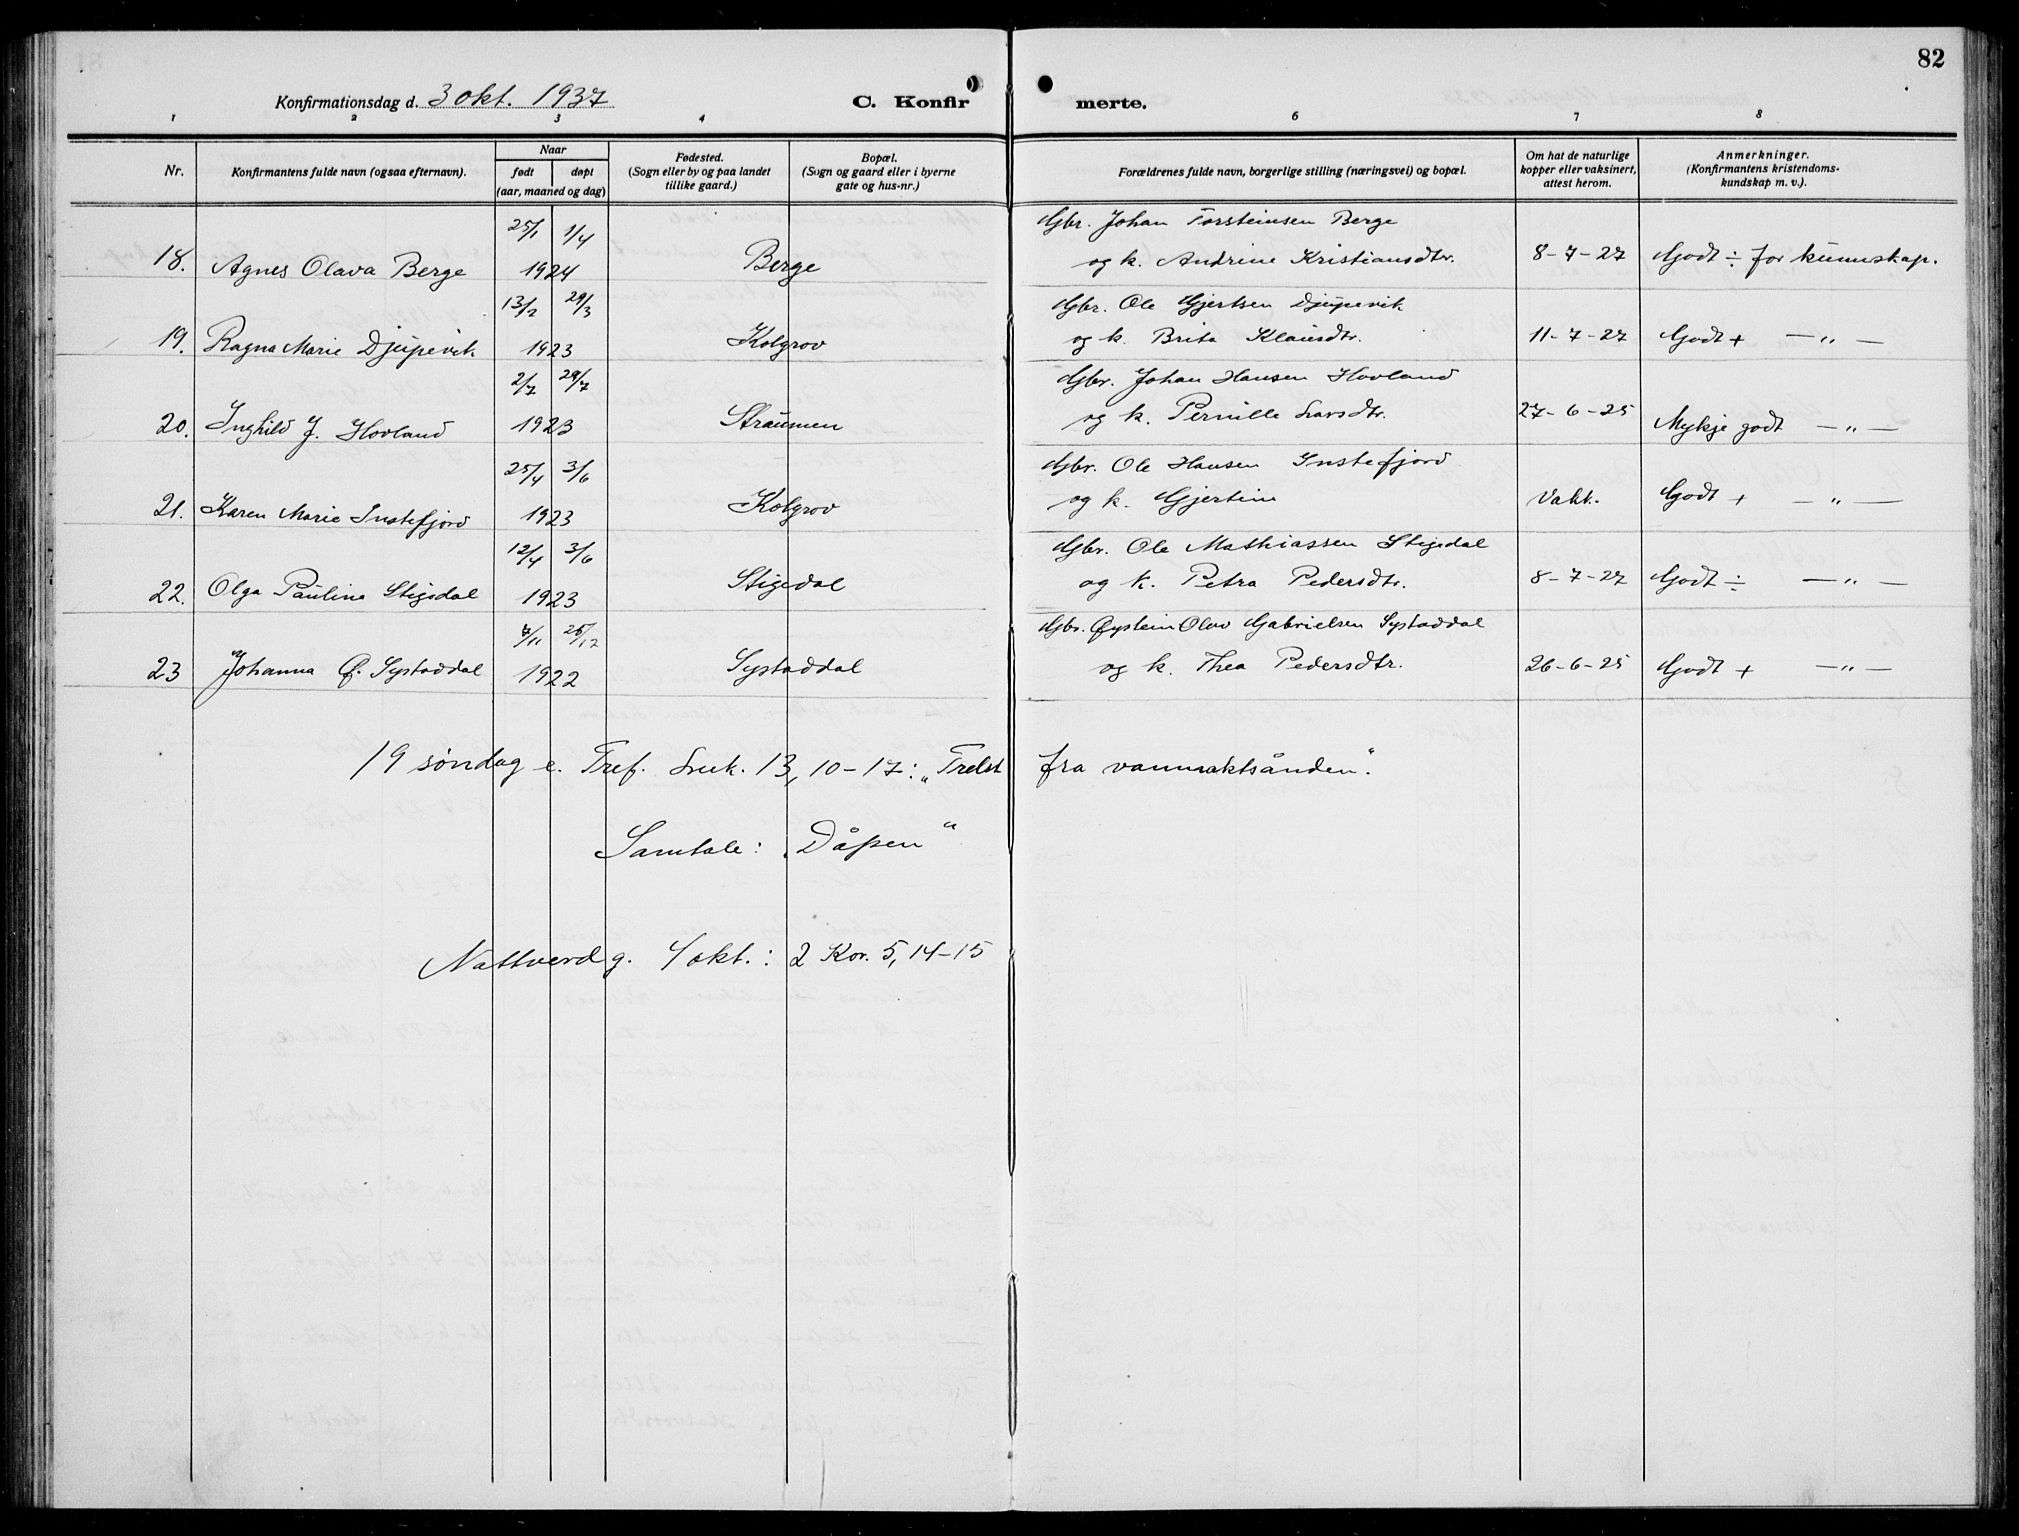 82
Konfirmationsdag d. 3 okt. 1937 C. Konfir merte.
1 2 3 4 6 7 8
Nr. Konfirmantens fulde navn (ogsaa efternavn). Naar født døpt (aar, maaned og dag) Fødested. (Sogn eller by og paa landet tillike gaard.) Bopæl. (Sogn og gaard eller i byerne gate og hus-nr.) Forældrenes fulde navn, borgerlige stilling (næringsvei) og bopæl. Om hat de naturlige kopper eller vaksinert, attest herom. Anmerkninger. (Konfirmantens kristendoms-kundskap m. v.).
25/1 1/4 Gbr. Johan Torsteinsen Berge
18. Agnes Olava Berge 1924 Berge og k. Andrine Kristiansdtr. 8-7-27 Godt ÷ for kunnskap.
13/2 29/3 Gbr. Ole Gjertsen Djupevik
19. Ragna Marie Djupevik 1923 Kolgrov og k. Brita Klausdtr. 11-7-27 Godt + — " —
2/7 29/7 Gbr. Johan Hansen Hovland
20. Inghild J. Hovland 1923 Straumen og k. Pernille Larsdtr. 27-6-25 Mykje godt — " —
25/4 3/6 Gbr. Ole Hansen Instefjord
21. Karen Marie Instefjord 1923 Kolgrov og k. Gjertine Vakk. Godt + — " —
12/4 3/6 Gbr. Ole Mathiassen Stigedal
22. Olga Pauline Stigedal 1923 Stigedal og k. Petra Pedersdtr. 8-7-27 Godt ÷ — " —
7/11 26/12 Gbr. Øystein Olav Gabrielsen Systaddal
23 Johanna Ø. Systaddal 1922 Systaddal og k. Thea Pedersdtr. 26-6-25 Godt + — " —
19 søndag e. Tref. Luk. 13, 10-17: „Frelst fra vanmaktsånden".
Samtale: „Dåpen"
Nattverdg. 4 okt.: 2 Kor. 5, 14-15